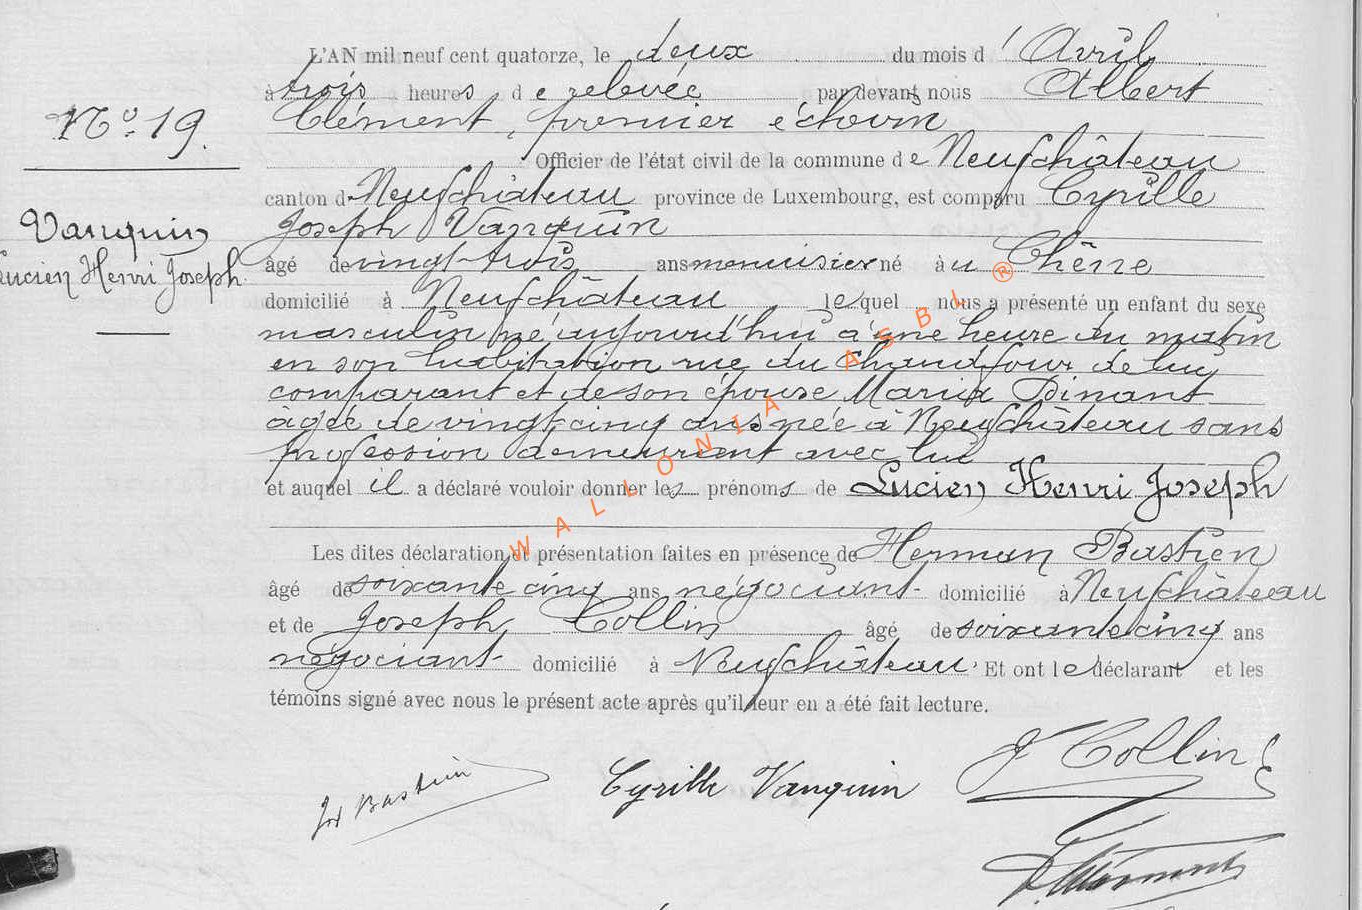 L'AN mil neuf cent quatorze, le deux du mois d'Avril
à trois heures de relevée par devant nous Albert
Clément, premier échevin
Officier de l'état civil de la commune de Neufchâteau
canton de Neufchâteau province de Luxembourg, est comparu Cyrille
Joseph Vanquin
âgé de vingt-trois ans menuisier né à u Chêne
domicilié à Neufchâteau lequel nous a présenté un enfant du sexe
masculin né aujourd'hui à une heure du matin
en son habitation rue du Chaudfour de lui
comparant et de son épouse Maria Dinant
âgée de vingt-cinq ans née à Neufchâteau sans
profession demeurant avec lui
et auquel il a déclaré vouloir donner les prénoms de Lucien Henri Joseph
Les dites déclaration et présentation faites en présence de Herman Bastien
âgé de soixante cinq ans négociant domicilié à Neufchâteau
et de Joseph Collin âgé de soixante cinq ans
négociant domicilié à Neufchâteau. Et ont le déclarant et les
témoins signé avec nous le présent acte après qu'il leur en a été fait lecture.
No. 19.
Vanquin
Lucien Henri Joseph
WALLONIA ASBL ®
Bastien
Cyrille Vanquin
J Collin